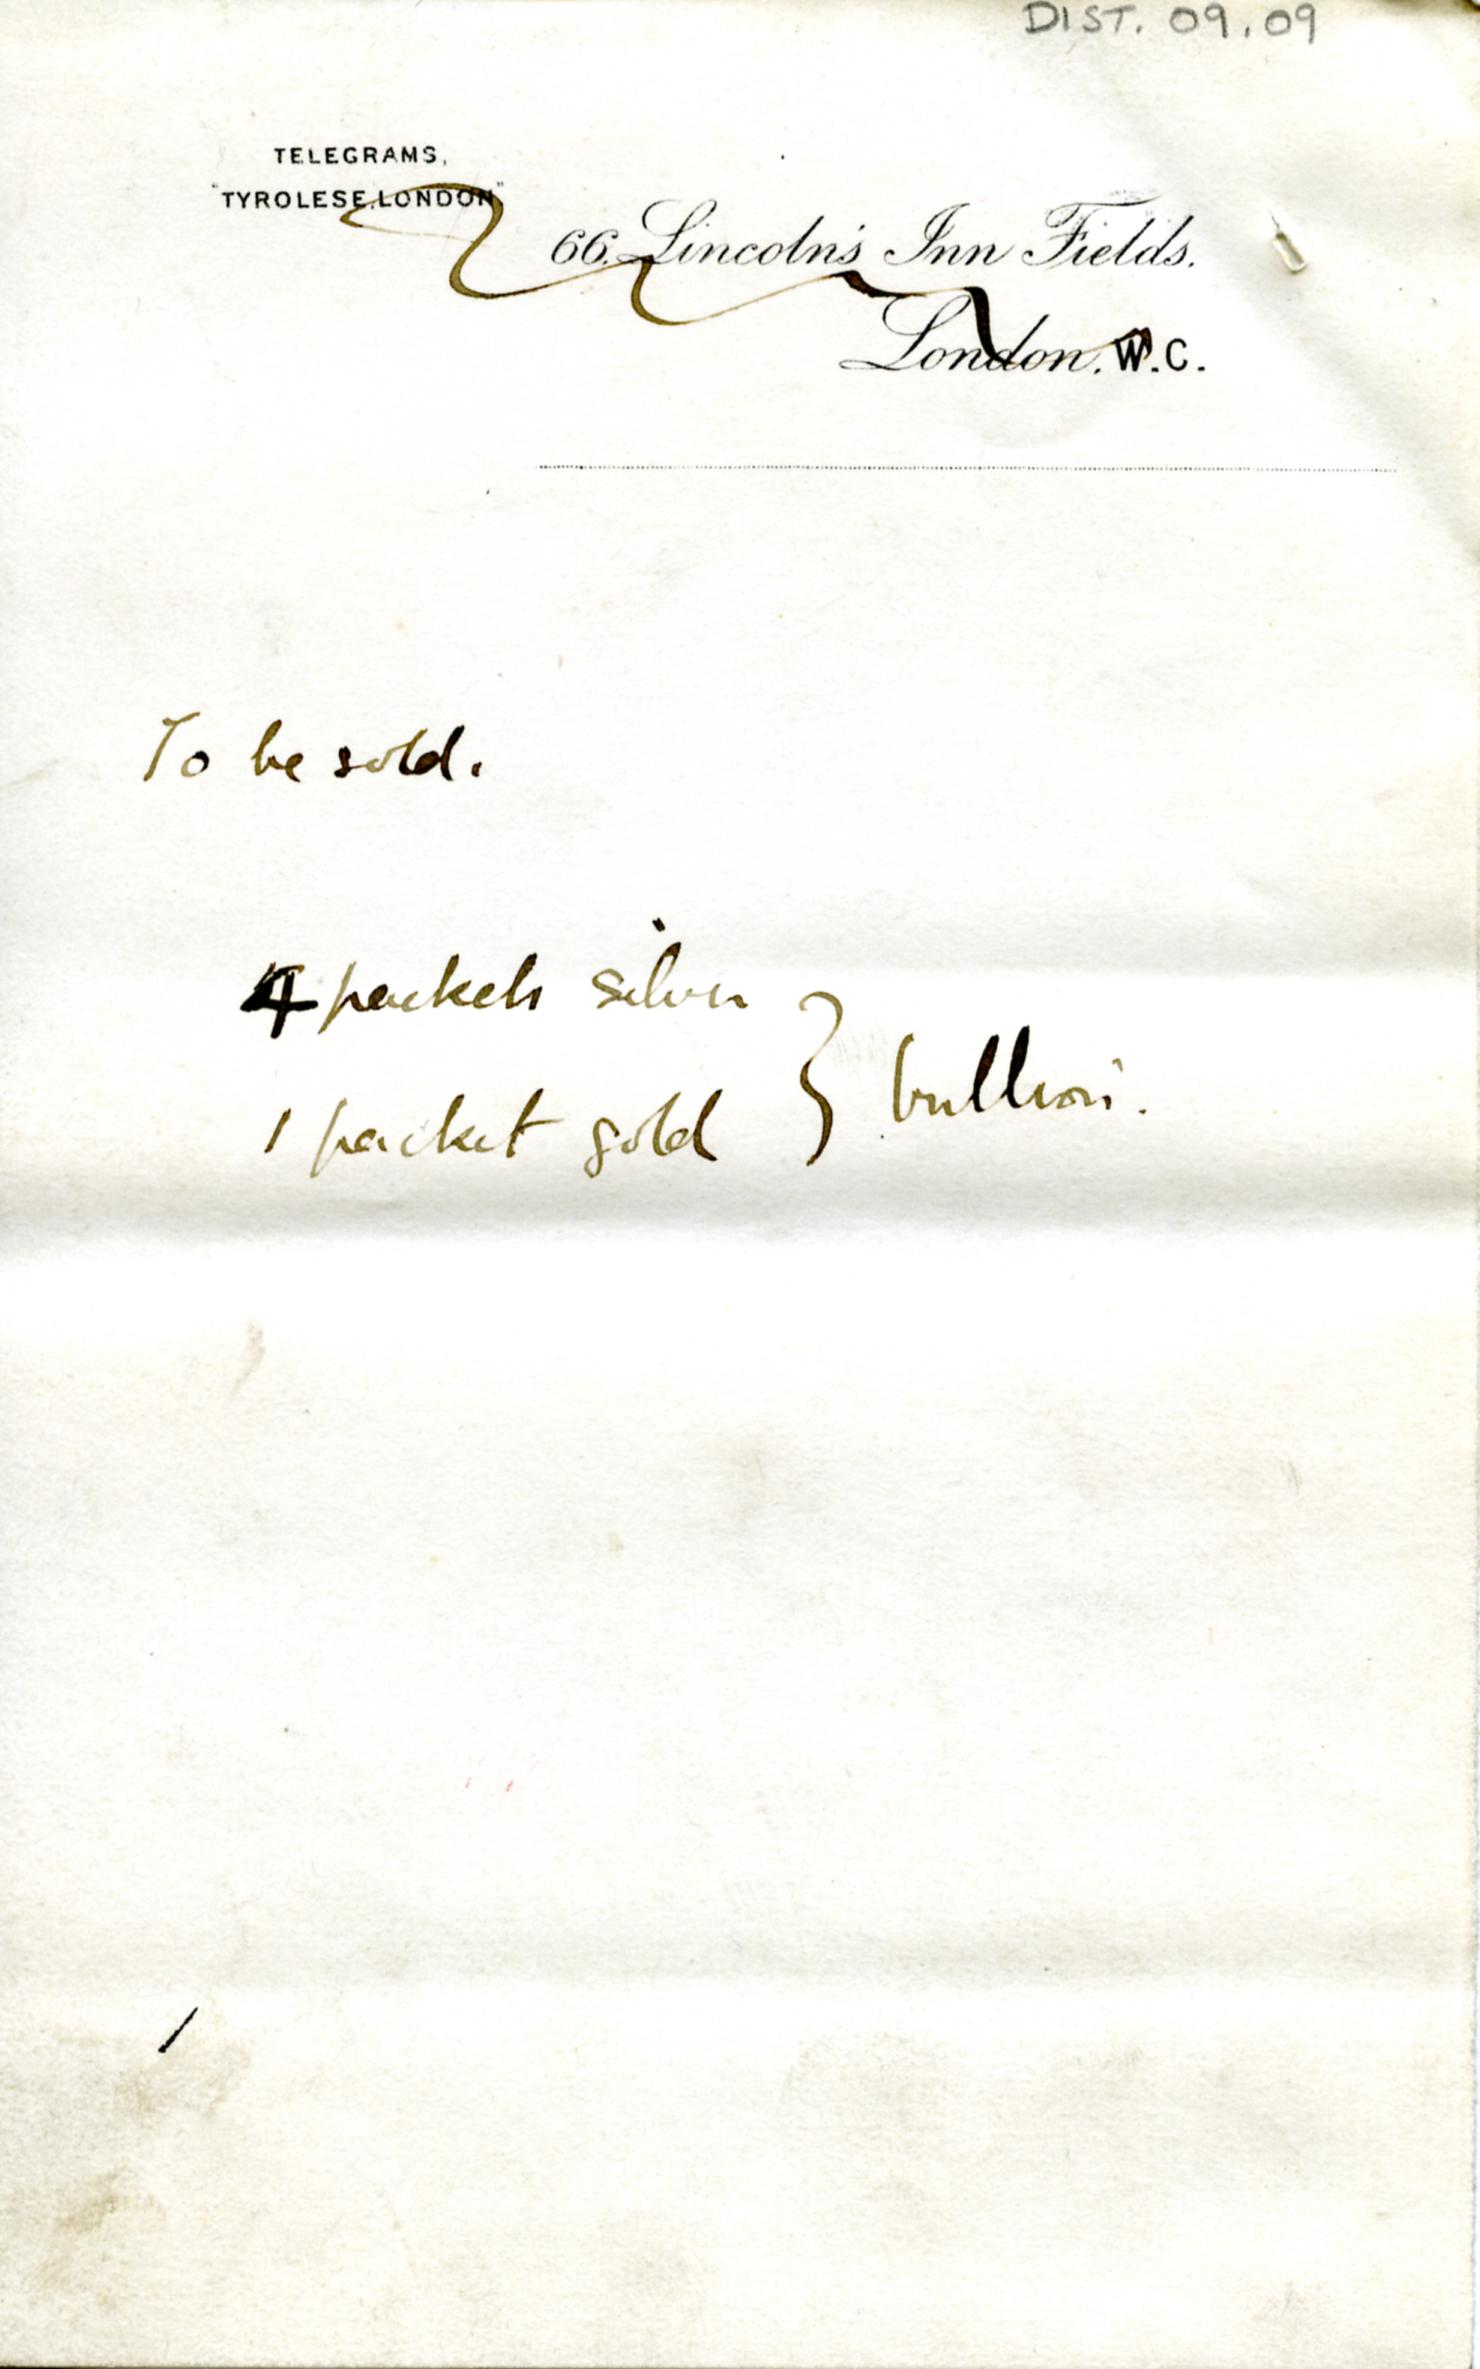 DIST. 09.09
TELEGRAMS,
"TYROLESE, LONDON"
66. Lincoln's Inn Fields.
London. W.C.
To be sold.
4 packets silver
1 packet gold } bullion.